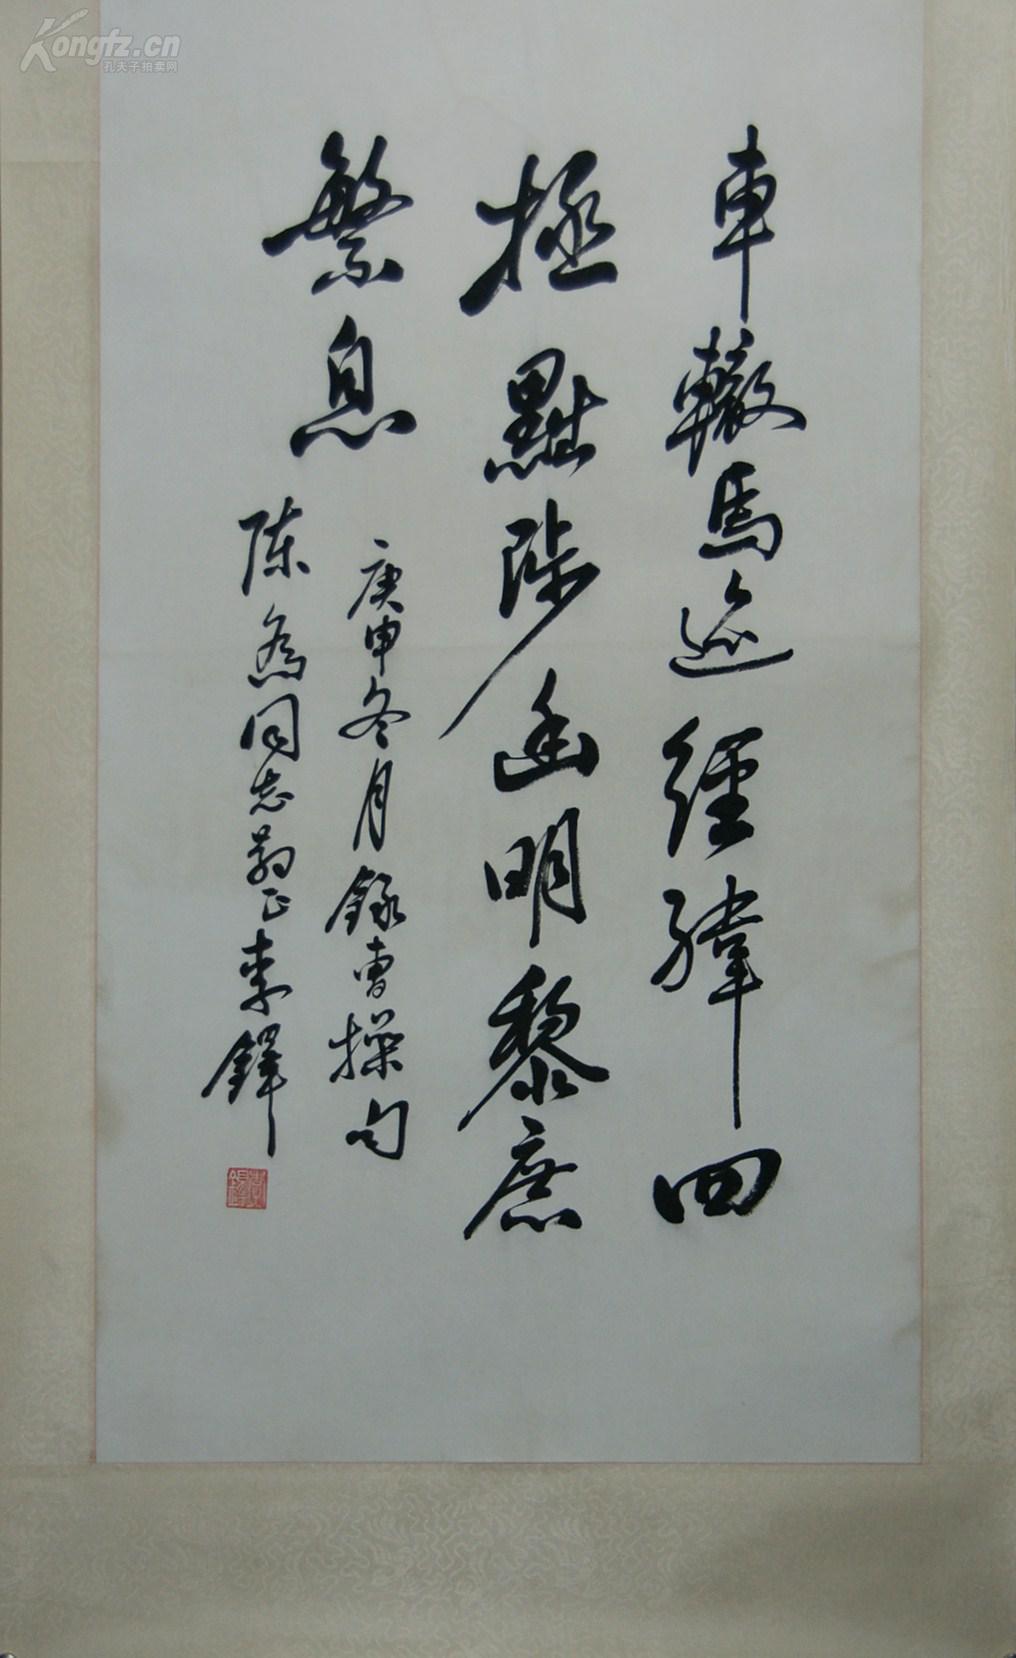 Kongfz.cn
孔夫子拍卖网
車轍馬迹經緯四
極黜陟幽明黎庶
繁息
庚申冬月錄曹操句
陈為同志嘱正李鐸
李鐸